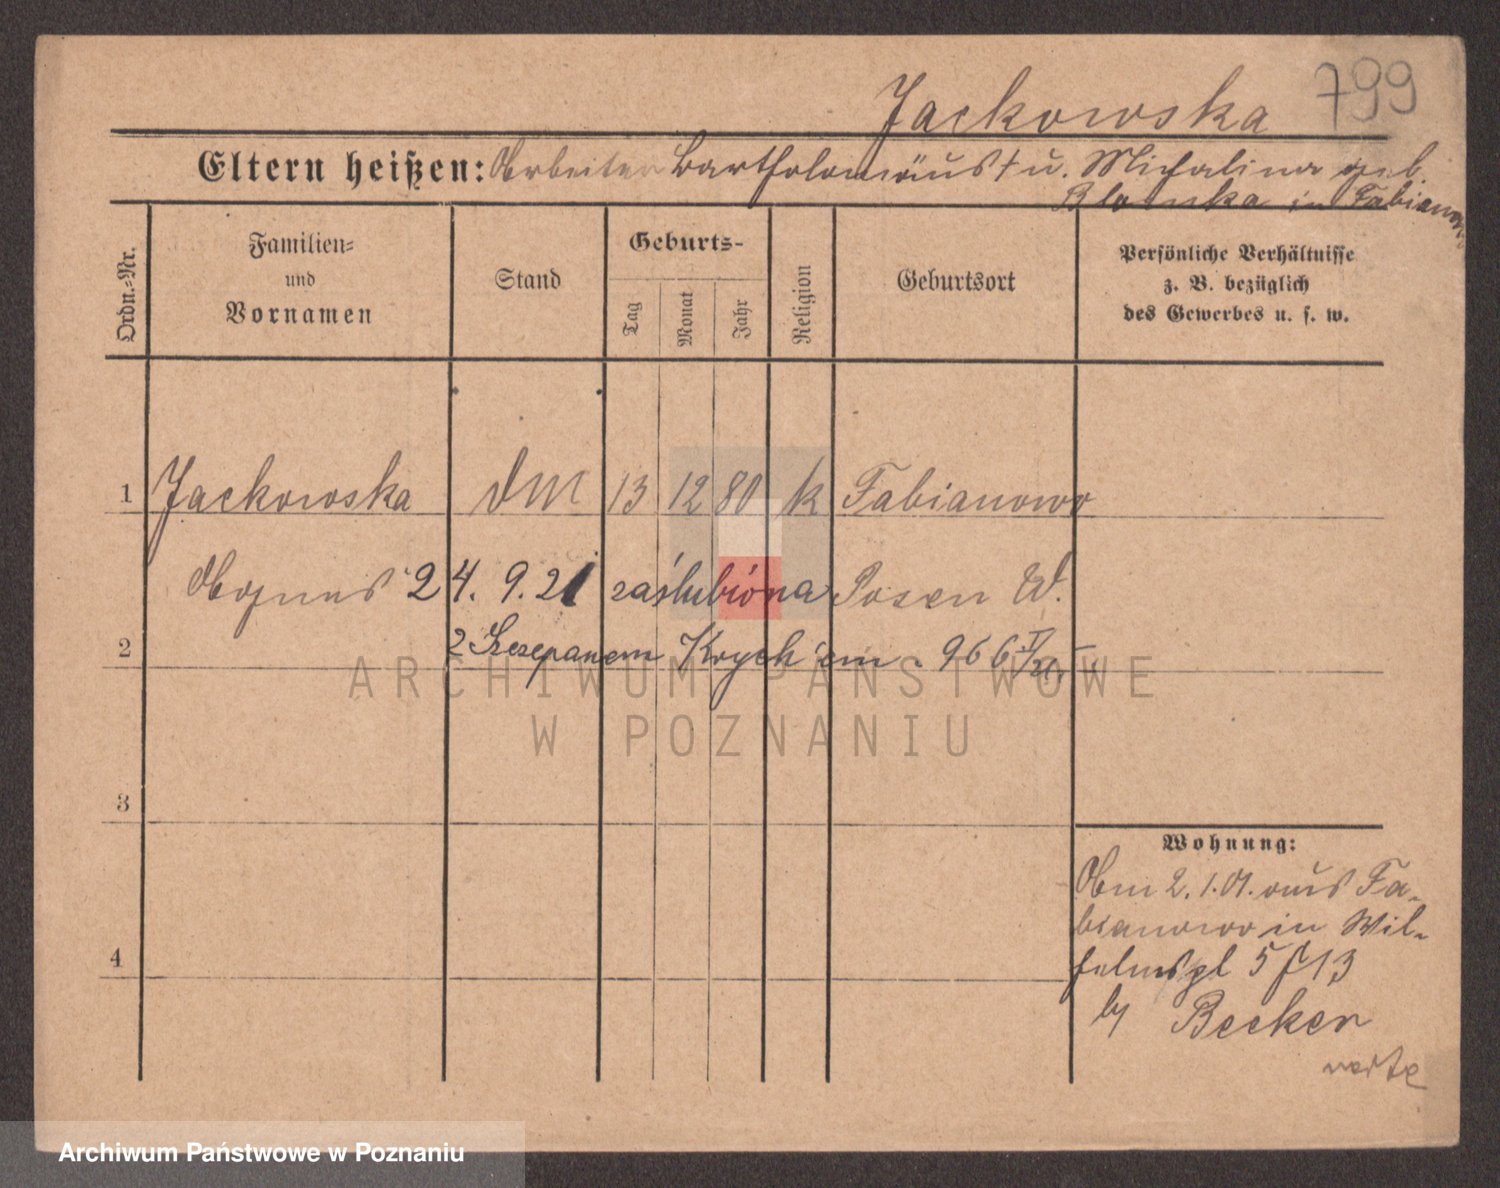 Jackowska 799
Eltern heißen: Arbeiter Bartholomäus † u. Michalina geb.
in Fabianowo
Ordn.-Nr.
Familien-
und
Vornamen
Stand
Geburts-
Tag
Monat
Jahr
Religion
Geburtsort
Persönliche Verhältnisse
z. B. bezüglich
des Gewerbes u. s. w.
1 Jackowska DM 13 12 80 k Fabianowo
Agnes 24. 9. 21 zaślubióna Posen W.
2 z Szczepanem Krych'em 966
3
4
Wohnung:
Am 2. 1. 01. aus Fa-
bianowo in Wil-
helmspl 5 13
by Becker
verte
ARCHIWUM PAŃSTWOWE
W POZNANIU
Archiwum Państwowe w Poznaniu